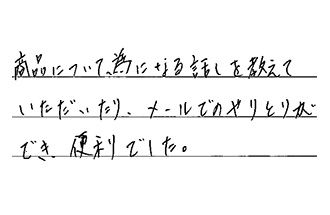 商品について、為になる話しを教えて
いただいたり、メールでのやりとりが
でき、便利でした。